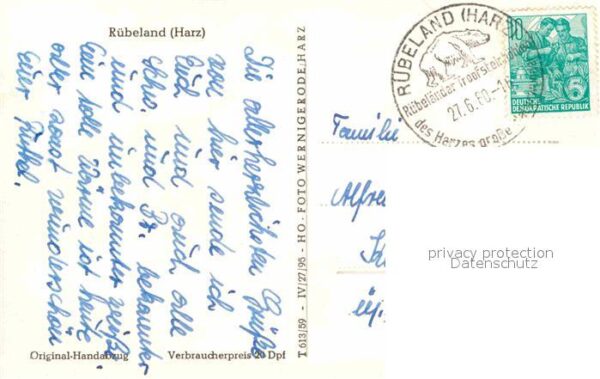 Rübeland (Harz)
Die allerherzlichsten Grüße
von hier sende ich
Euch und alle
und Br. bekannter
und unbekannter
Eine tolle Wärme ist heute
aber sonst wunderschön
Eure
Original-Handabzug Verbraucherpreis 20 Dpf
T 613/59 - IV/27/95 - HO-FOTO WERNIGERODE/HARZ
RÜBELAND (HARZ)
Rübeländer Tropfsteinhöhlen
27.6.60
des Harzes große
5
DEUTSCHE
DEMOKRATISCHE REPUBLIK
Familie
Alfred
privacy protection
Datenschutz